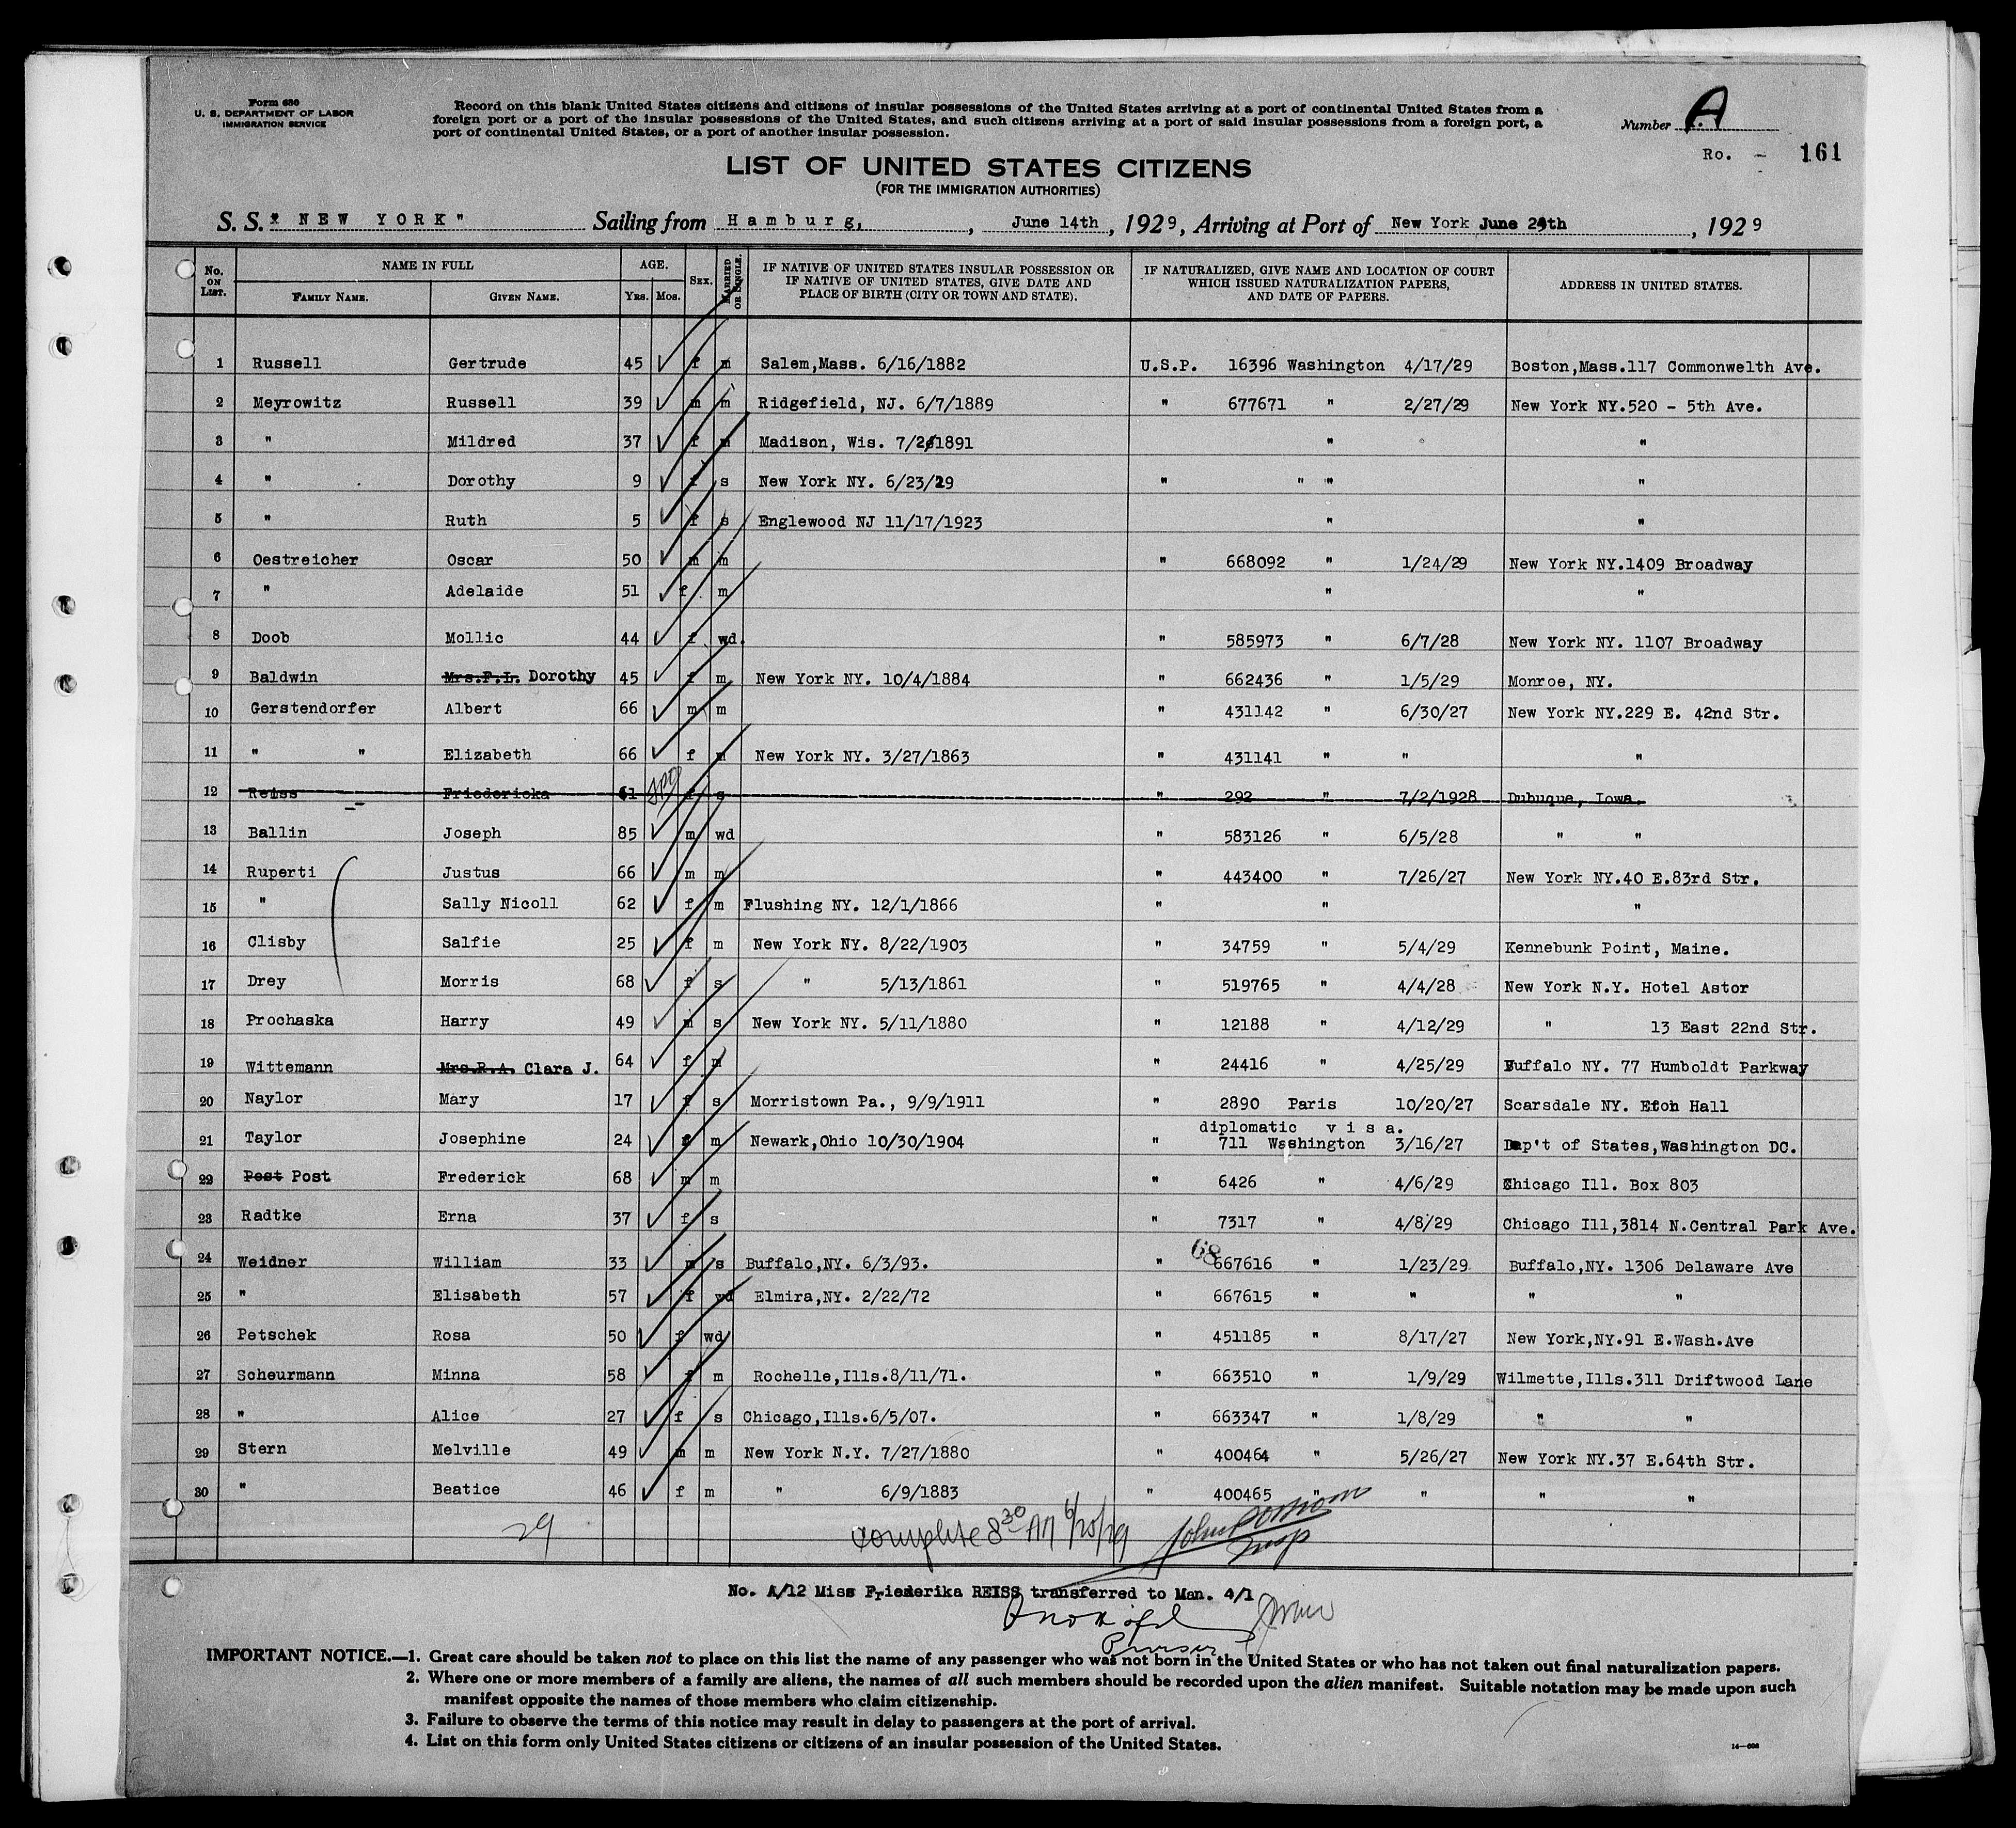 Form 630
U. S. DEPARTMENT OF LABOR
IMMIGRATION SERVICE
Record on this blank United States citizens and citizens of insular possessions of the United States arriving at a port of continental United States from a
foreign port or a port of the insular possessions of the United States, and such citizens arriving at a port of said insular possessions from a foreign port, a
port of continental United States, or a port of another insular possession.
Number A
Ro. - 161
LIST OF UNITED STATES CITIZENS
(FOR THE IMMIGRATION AUTHORITIES)
S. S. " NEW YORK" Sailing from Hamburg, , June 14th , 1929, Arriving at Port of New York June 24th , 1929
No. ON LIST. NAME IN FULL FAMILY NAME. GIVEN NAME. AGE. YRS. MOS. SEX. MARRIED OR SINGLE. IF NATIVE OF UNITED STATES INSULAR POSSESSION OR IF NATIVE OF UNITED STATES, GIVE DATE AND PLACE OF BIRTH (CITY OR TOWN AND STATE). IF NATURALIZED, GIVE NAME AND LOCATION OF COURT WHICH ISSUED NATURALIZATION PAPERS, AND DATE OF PAPERS. ADDRESS IN UNITED STATES.
1 Russell Gertrude 45 f m Salem,Mass. 6/16/1882 U.S.P. 16396 Washington 4/17/29 Boston,Mass.117 Commonwelth Ave.
2 Meyrowitz Russell 39 m m Ridgefield, NJ. 6/7/1889 " 677671 " 2/27/29 New York NY.520 - 5th Ave.
3 " Mildred 37 f m Madison, Wis. 7/26/1891 " "
4 " Dorothy 9 f s New York NY. 6/23/19 " " " "
5 " Ruth 5 f s Englewood NJ 11/17/1923 " "
6 Oestreicher Oscar 50 m m " 668092 " 1/24/29 New York NY.1409 Broadway
7 " Adelaide 51 f m " "
8 Doob Mollic 44 f wd. " 585973 " 6/7/28 New York NY. 1107 Broadway
9 Baldwin Mrs.F.L. Dorothy 45 f m New York NY. 10/4/1884 " 662436 " 1/5/29 Monroe, NY.
10 Gerstendorfer Albert 66 m m " 431142 " 6/30/27 New York NY.229 E. 42nd Str.
11 " " Elizabeth 66 f m New York NY. 3/27/1863 " 431141 " " "
12 Reiss Friedericka 61 f s " 292 " 7/2/1928 Dubuque, Iowa.
13 Ballin Joseph 85 m wd " 583126 " 6/5/28 " "
14 Ruperti Justus 66 m m " 443400 " 7/26/27 New York NY.40 E.83rd Str.
15 " Sally Nicoll 62 f m Flushing NY. 12/1/1866 " " "
16 Clisby Salfie 25 f m New York NY. 8/22/1903 " 34759 " 5/4/29 Kennebunk Point, Maine.
17 Drey Morris 68 f s " 5/13/1861 " 519765 " 4/4/28 New York N.Y. Hotel Astor
18 Prochaska Harry 49 m s New York NY. 5/11/1880 " 12188 " 4/12/29 " 13 East 22nd Str.
19 Wittemann Mrs.R.A. Clara J. 64 f m " 24416 " 4/25/29 Buffalo NY. 77 Humboldt Parkway
20 Naylor Mary 17 f s Morristown Pa., 9/9/1911 " 2890 Paris 10/20/27 Scarsdale NY. Eton Hall
diplomatic visa.
21 Taylor Josephine 24 f m Newark,Ohio 10/30/1904 " 711 Washington 3/16/27 Dep't of States,Washington DC.
22 Pest Post Frederick 68 m m " 6426 " 4/6/29 Chicago Ill. Box 803
23 Radtke Erna 37 f s " 7317 " 4/8/29 Chicago Ill,3814 N.Central Park Ave.
68
24 Weidner William 33 m s Buffalo,NY. 6/3/93. " 667616 " 1/23/29 Buffalo,NY. 1306 Delaware Ave
25 " Elisabeth 57 f wd Elmira,NY. 2/22/72 " 667615 " " " "
26 Petschek Rosa 50 f wd " 451185 " 8/17/27 New York,NY.91 E.Wash.Ave
27 Scheurmann Minna 58 f m Rochelle,Ills.8/11/71. " 663510 " 1/9/29 Wilmette,Ills.311 Driftwood Lane
28 " Alice 27 f s Chicago,Ills.6/5/07. " 663347 " 1/8/29 " "
29 Stern Melville 49 m m New York N.Y. 7/27/1880 " 400464 " 5/26/27 New York NY.37 E.64th Str.
30 " Beatice 46 f m " 6/9/1883 " 400465 " " " "
29 complete 8 30 AM 6/25/29 Insp
No. A/12 Miss Friederika REISS transferred to Man. 4/1
Purser
IMPORTANT NOTICE.—1. Great care should be taken not to place on this list the name of any passenger who was not born in the United States or who has not taken out final naturalization papers.
2. Where one or more members of a family are aliens, the names of all such members should be recorded upon the alien manifest. Suitable notation may be made upon such
manifest opposite the names of those members who claim citizenship.
3. Failure to observe the terms of this notice may result in delay to passengers at the port of arrival.
4. List on this form only United States citizens or citizens of an insular possession of the United States.